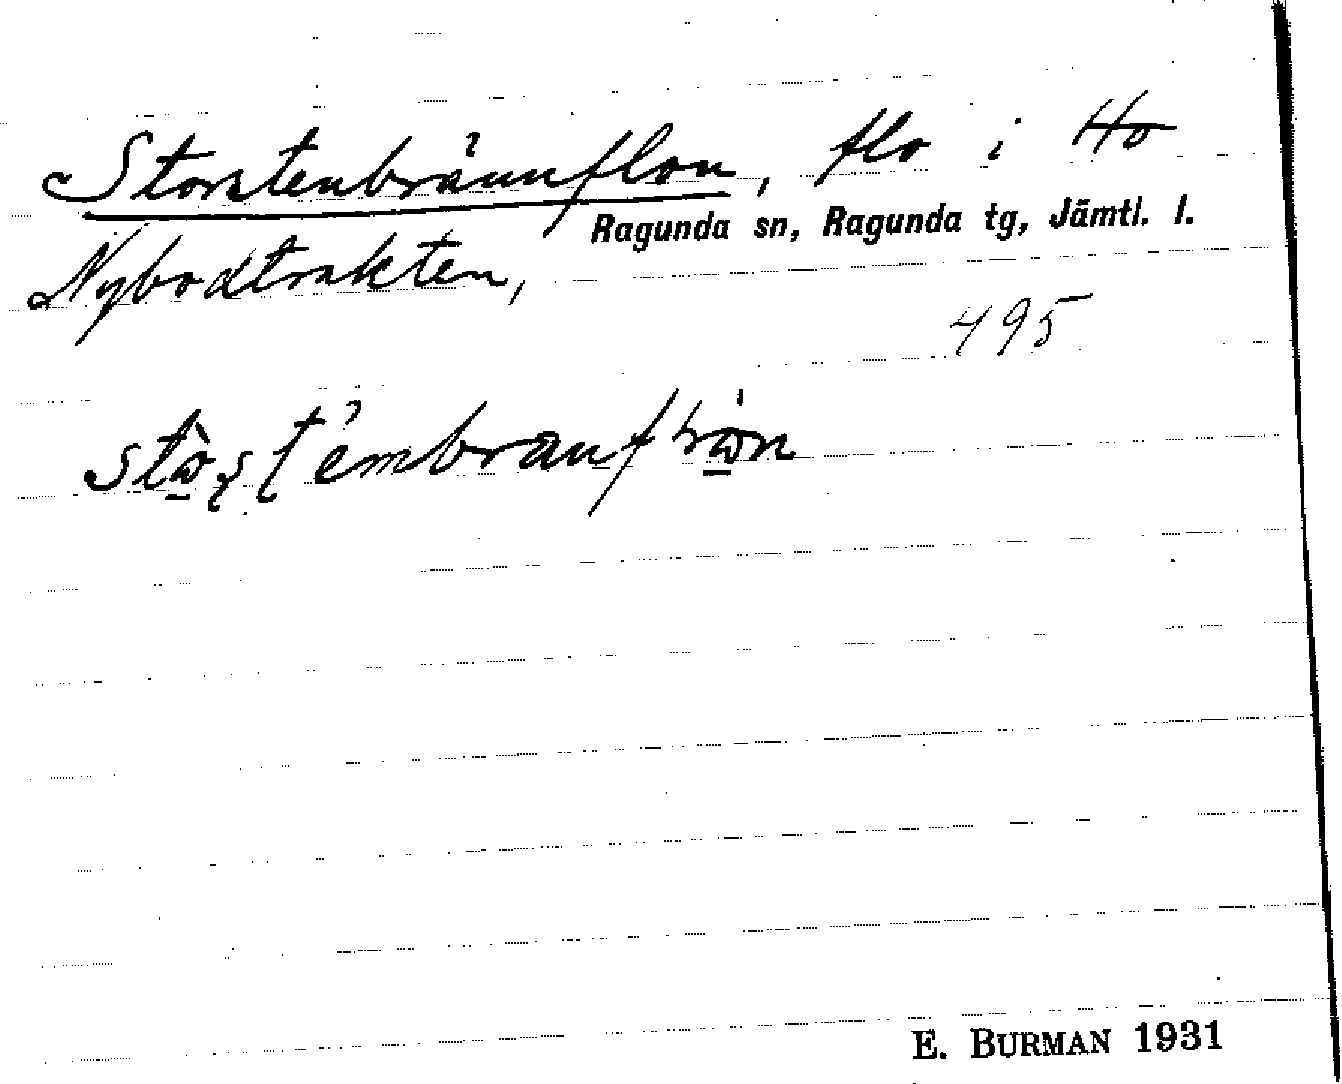 Storstenbrännflon, flo i Ho
Ragunda sn, Ragunda tg, Jämtl. l.
Nybodtrakten,
495
E. BURMAN 1931